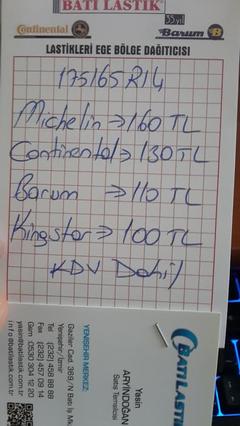 BATI LASTİK
35.yıl
Continental Barum B
LASTİKLERİ EGE BÖLGE DAĞITICISI
175/65 R14
Michelin → 160 TL
Continental → 130 TL
Barum → 110 TL
KingStar → 100 TL
KDV Dahil
BATI LASTİK
Yasin
ARYINDOĞAN
Satış Temsilcisi
YENİŞEHİR MERKEZ:
Gaziler Cad. 369/N Batı İş M
Yenişehir/İzmir
Tel (232) 458 88 88
Fax (232) 457 09 14
Gsm (0530) 304 12 20
yasin@batilastik.com.tr
info@batilastik.com.tr